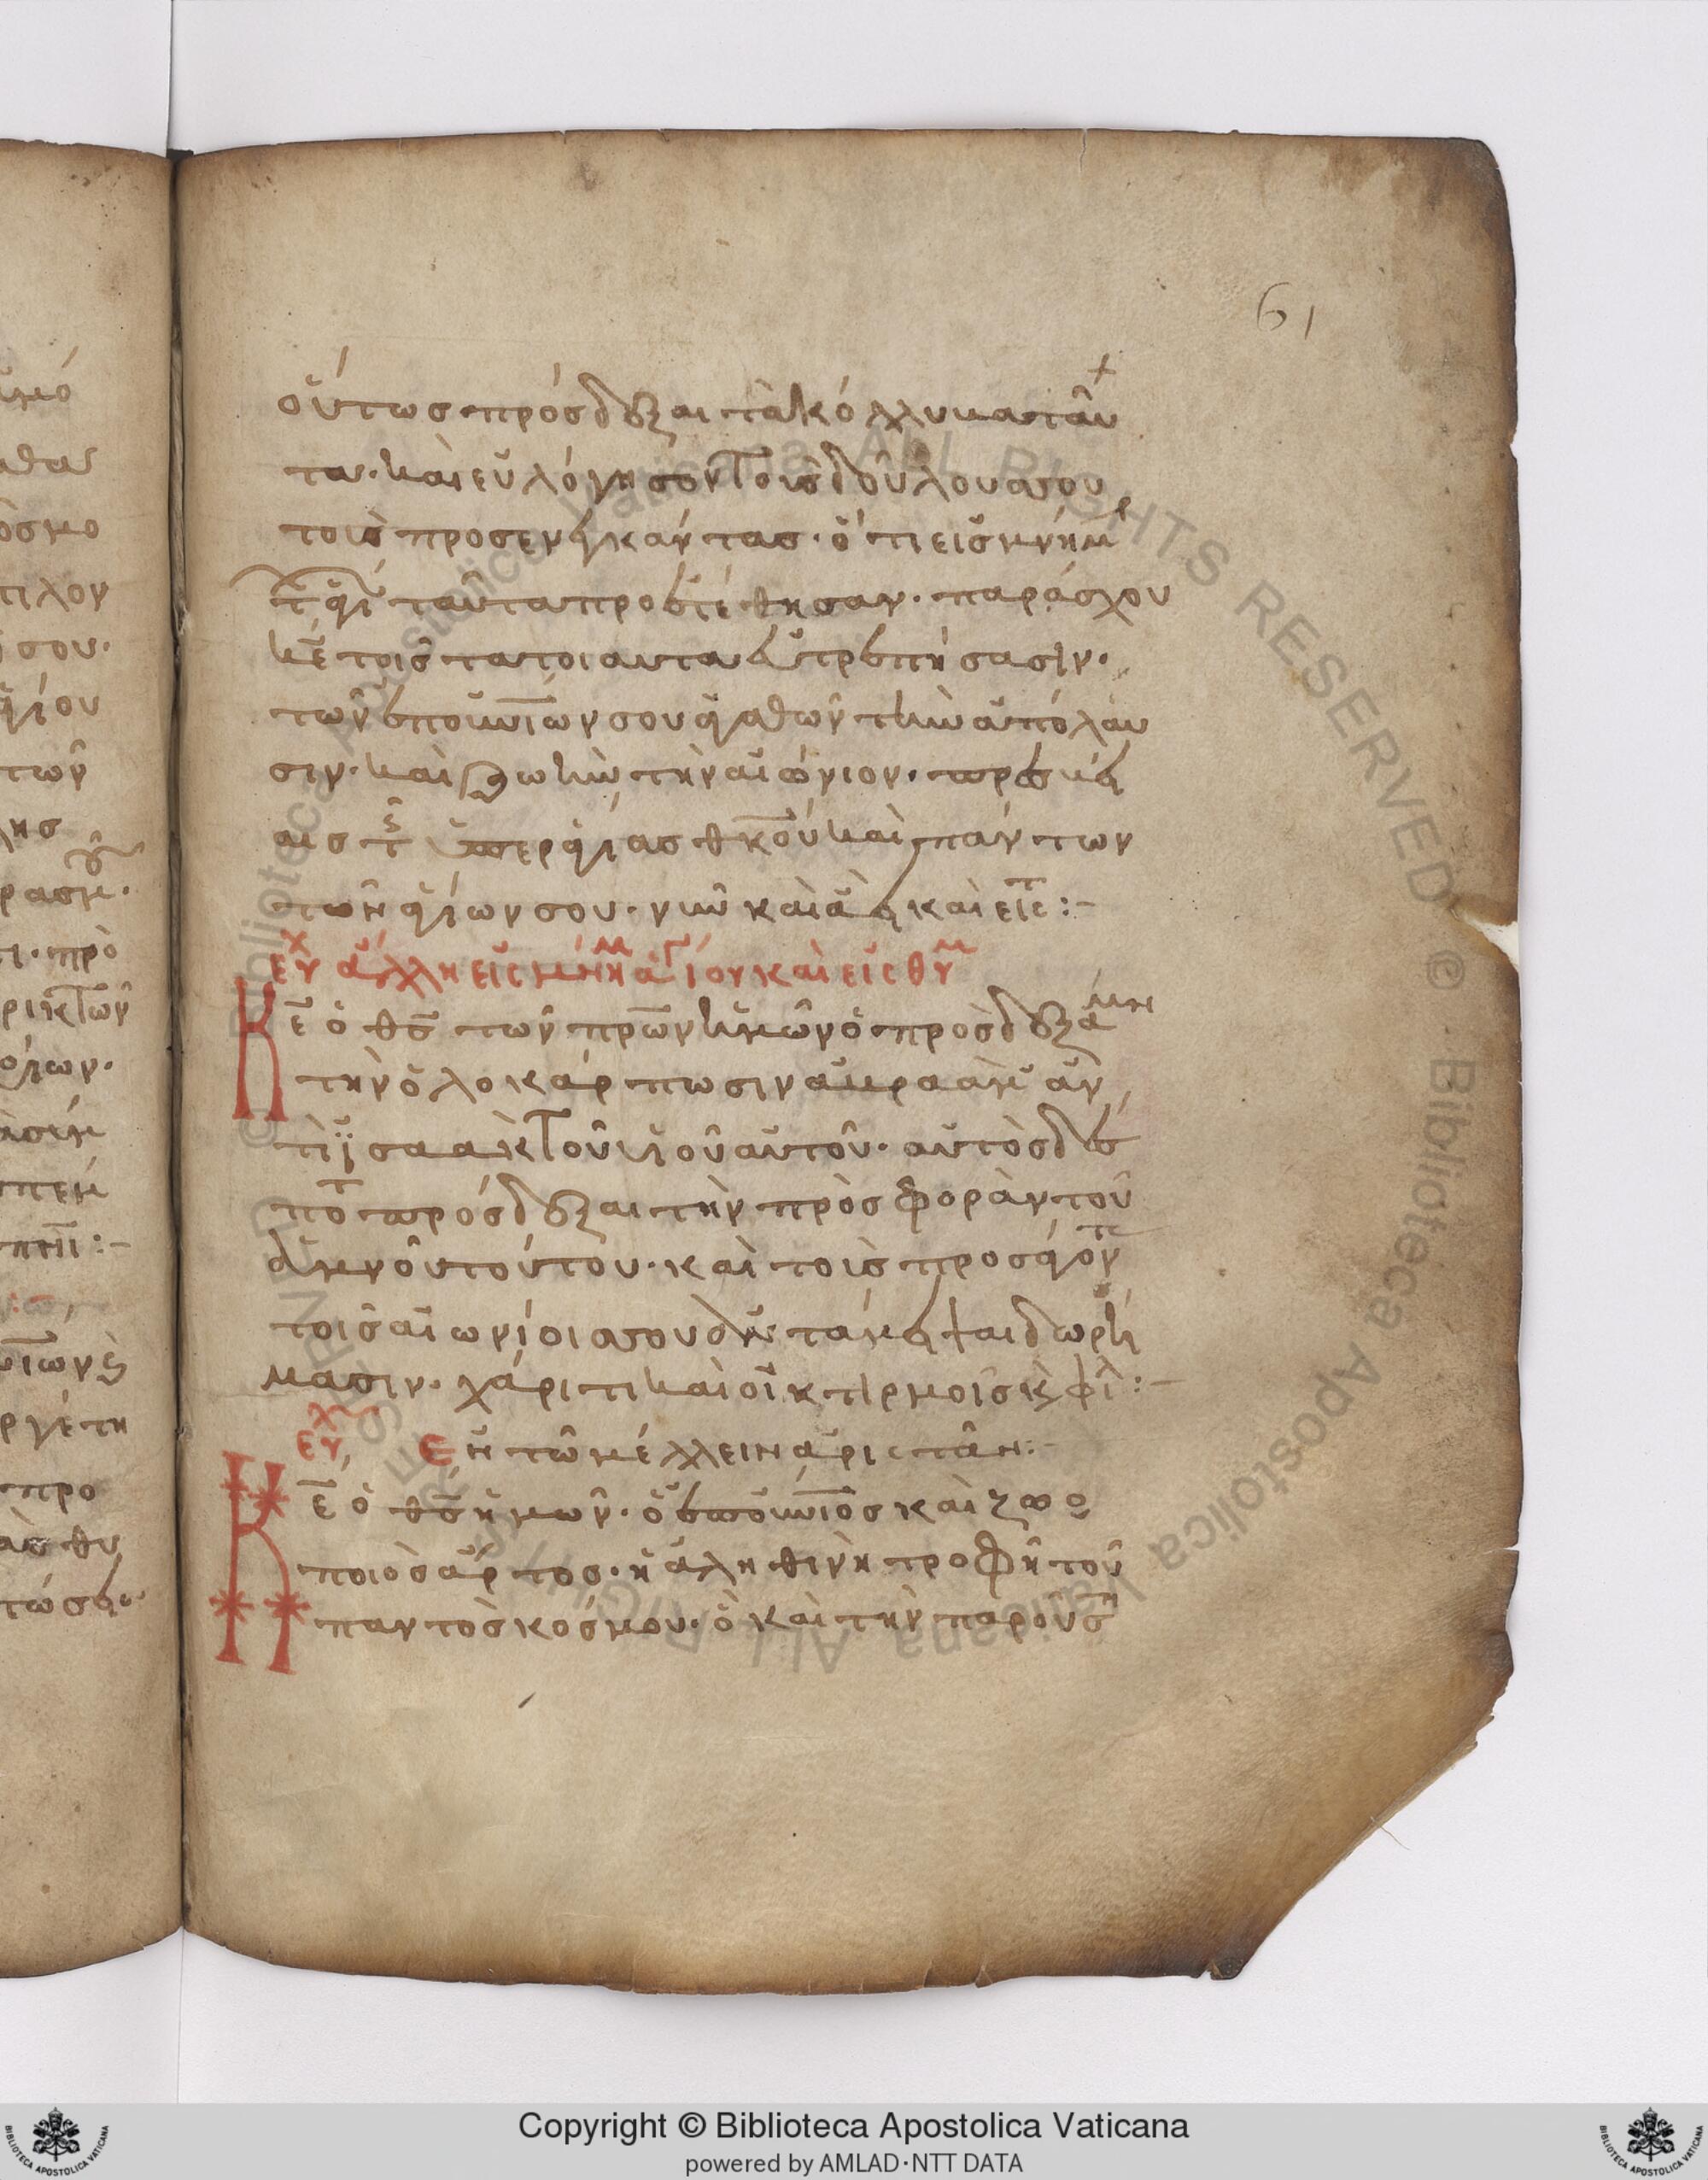 61
οὕτως πρόσδεξαι τὰ κόλλυβα ταῦ
τα· καὶ εὐλόγησον τοὺς δούλους σου
τοὺς προσενέγκαντας· ὅτι εἰς μνήμ
τ ἁγί ταῦτα προετέθησαν· παράσχου
κε τοῖς τὰ τοιαῦτα εὐτρεπήσασιν·
τῶν ἐπουνίων σου ἀγαθῶν τὴν ἀπόλαυ
σιν· καὶ ζωὴν τὴν αἰώνιον· πρεσβεί
αις τ ὑπεραγίας θκου καὶ πάντων
τῶν ἁγίων σου· νῦν καὶ ἀεὶ καὶ εἰς :-
εὐχ ἄλλη εἰς μνήμ ἁγίου καὶ εἰς θυμ
Κε ὁ θς τῶν πρων ἡμῶν ὁ προσδεξάμ
τὴν ὁλοκάρπωσιν ἀβραὰμ ἀν
τὶ ϊσαὰκ τοῦ υἱοῦ αὐτοῦ· αὐτὸς δέσ
ποτ πρόσδεξαι τὴν προσφορὰν τοῦ
ἀμνοῦ τούτου· καὶ τοὺς προσάγοντ
τοῖς αἰωνίοις σου ἀντάμειψαι δωρή
μασιν· χάριτι καὶ οἰκτιρμοῖς κ φιλ :-
εὐχ, Εν τῶ μέλλειν ἀριστᾶν:-
Κε ὁ θς ἡμῶν· ὁ ἐπουνιος καὶ ζωο
ποιὸς ἄρτος· ἡ ἀληθινὴ τροφὴ τοῦ
παντὸς κόσμου· ὁ καὶ τὴν παροῦσ
Copyright © Biblioteca Apostolica Vaticana
powered by AMLAD·NTT DATA